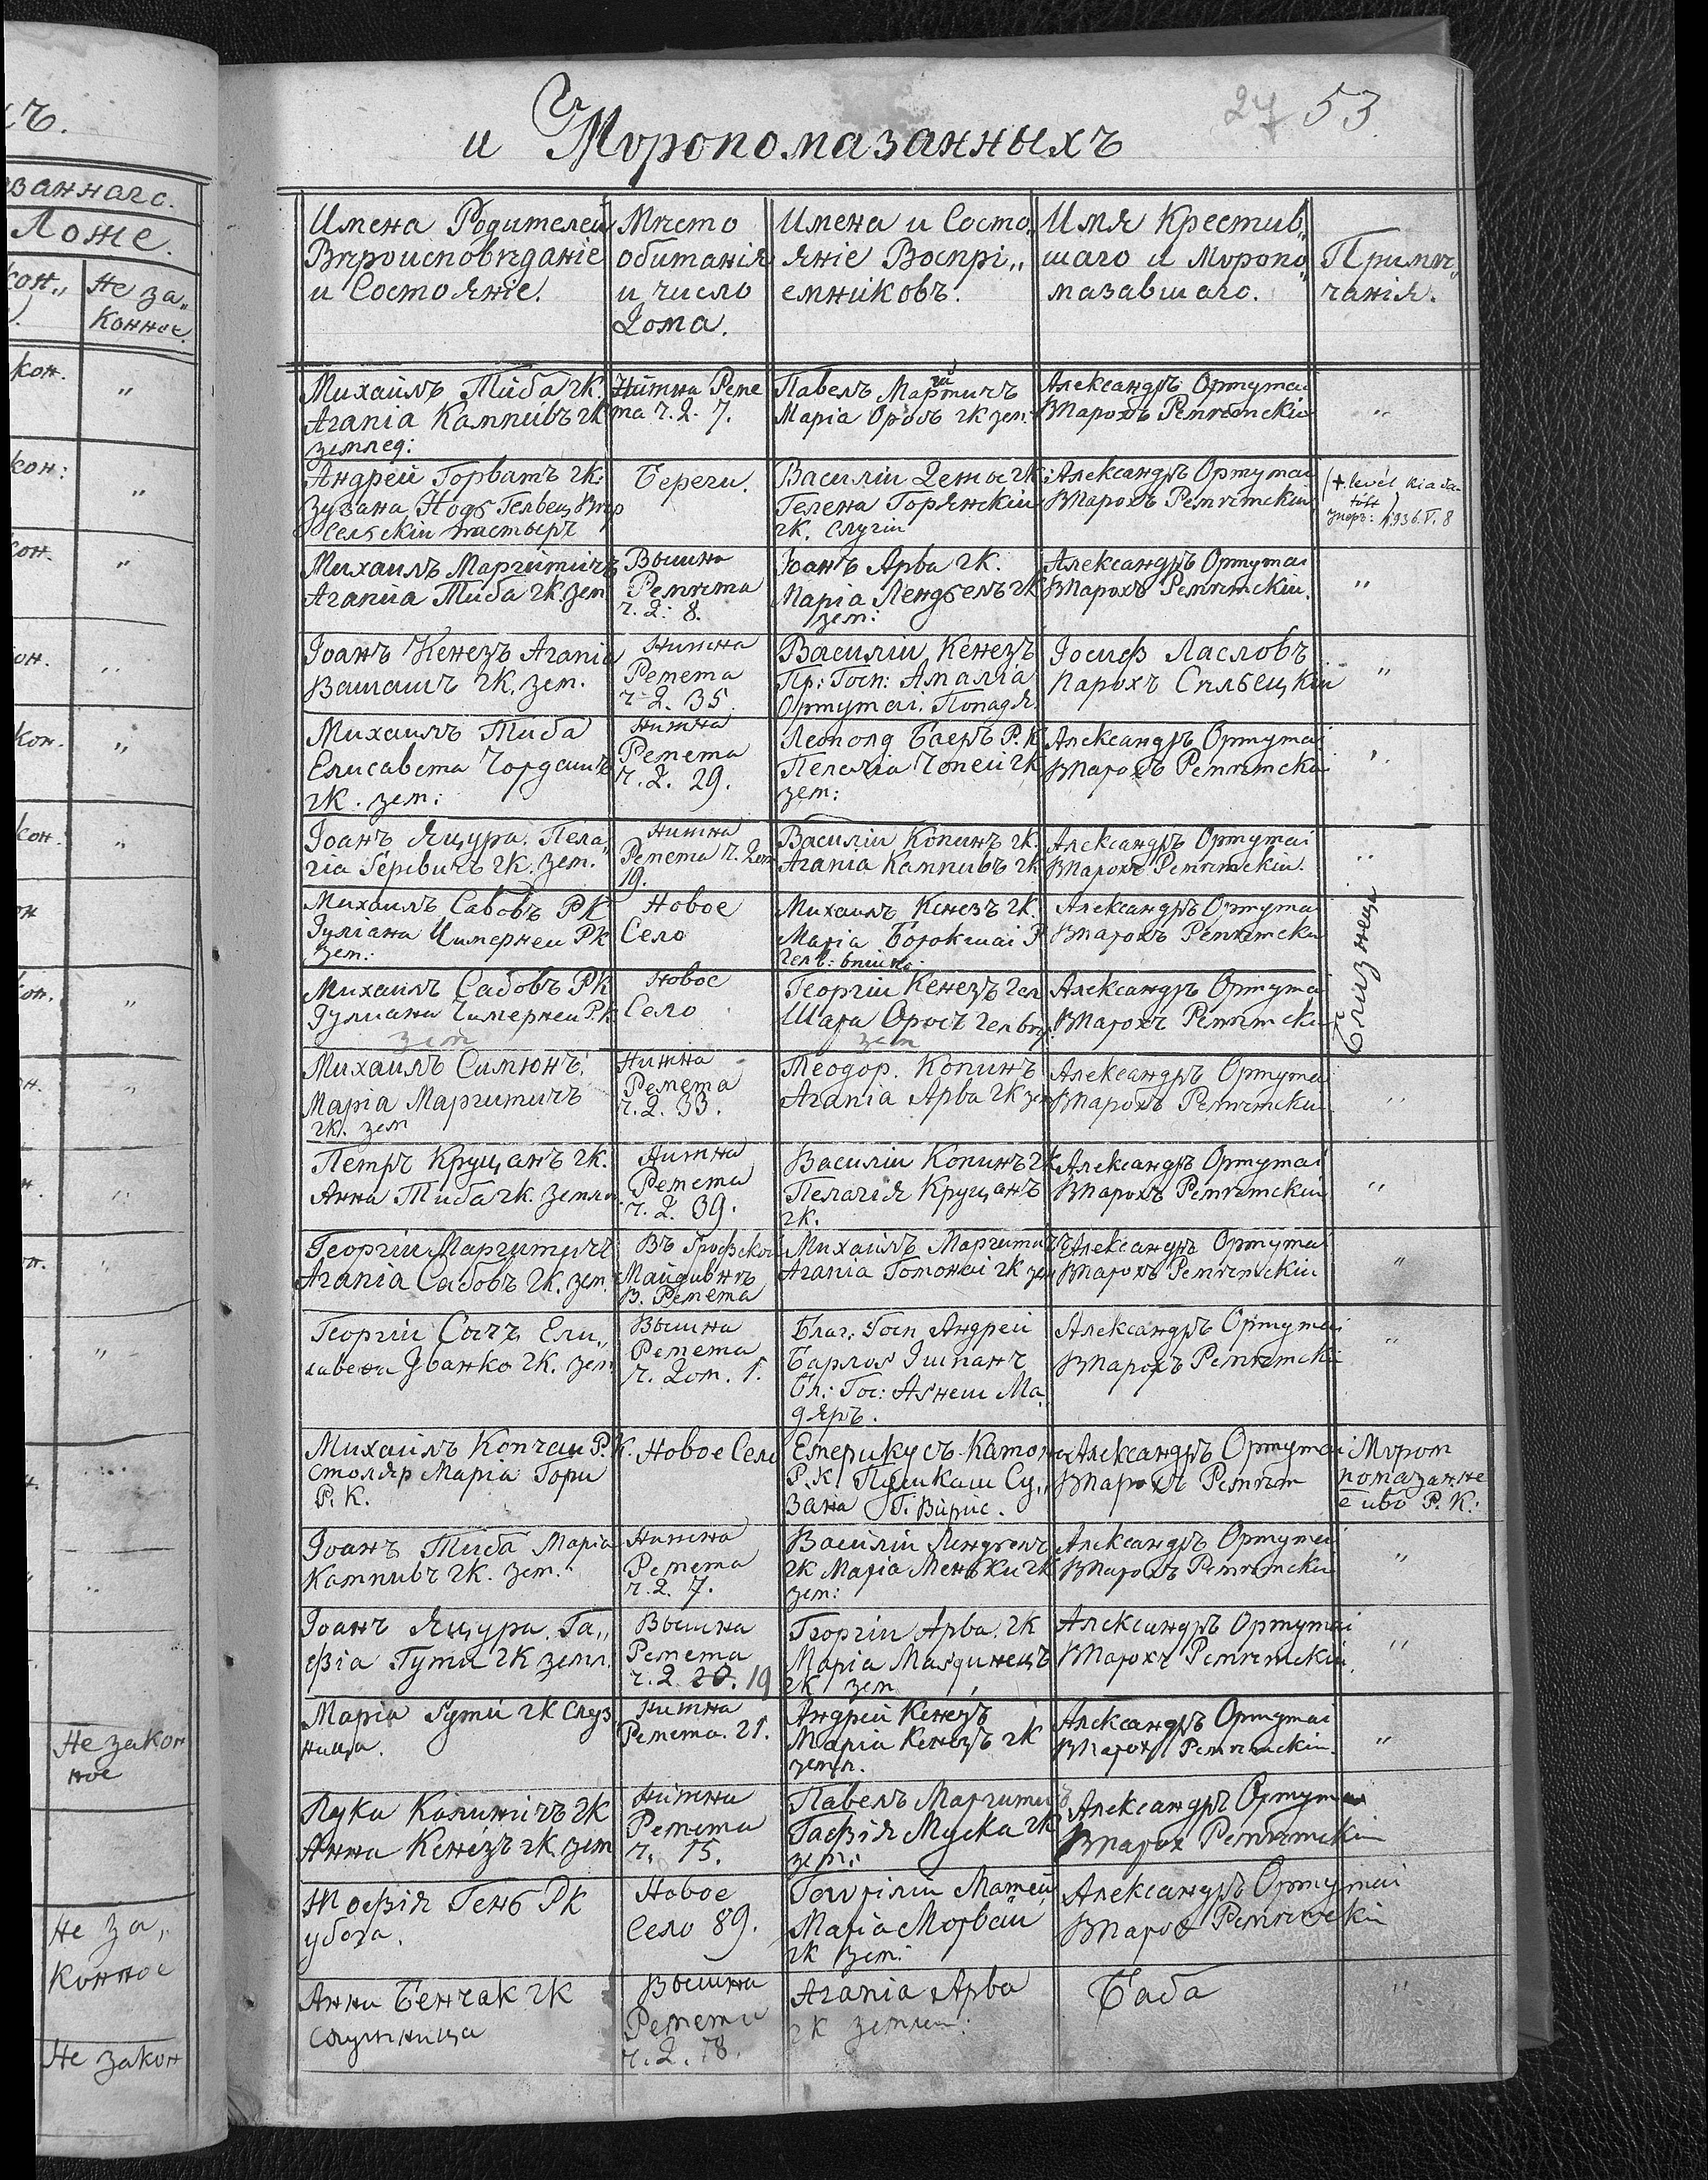 27 53.
и Мѵропомазанныхъ
ъ.
занного.
Ложе.
Не за„
конное.
Имена Родителей
Вѣроисповѣданіе
и Состояніе.
Мѣсто
обитанія
и число
Дома.
Имена и Состо„
яніе Воспрі„
емниковъ.
Имя Крестив„
шаго и Мѵропо„
мазавшаго.
Примѣ„
чанія.
Михаилъ Тиба гк.
Агапіа Кампивъ гк
землед:
Нижна Реме
та ч. д. 7.
Павелъ
Маріа Оросъ гк зем:
Александръ Ортутаи
Парохъ Реметскіи
„
Андреи Горватъ гк:
Зузана Нодь Гелвец вѣр
Сельскіи пастырь
Береги.
Василіи гк:
Гелена Горянскіи
гк. слугіи
Александръ Ортутаи
Парохъ Реметскіи
(+ levél kiada-
tott
1936. V. 8
Михаилъ Маргитичъ
Агапиа Тиба гк. зем
Вышна
Ремета
ч. д: 8.
Іоанъ Арва гк.
Маріа Лендьелъ гк
зем:
Александръ Ортутаи
Парохъ Реметскіи.
„
Іоанъ Кенезъ Агапіа
Вашашъ гк. зем.
Нижна
Ремета
ч. д. 35.
Василіи Кенезъ
Пр: Госп: Амаліа
Ортутаі. Попадя.
Іосиф Ласловъ
Парохъ
„
Михаилъ Тиба
Елисавета Чордашъ
гк. зем:
Нижна
Ремета
ч. д. 29.
Леополд Баеръ Р. К
Пелагіа Чопеи гк
зем:
Александръ Ортутаі
Парохъ Реметски
„
Іоанъ Яцура. Пела„
гіа гк. зем.
Нижна
Ремета ч. дом
19.
Василіи Копинъ гк.
Агапіа Кампивъ гк
Александръ Ортутаі
Парохъ Реметскіи.
„
Михаилъ Сабовъ РК
Іуліана Цимернеи РК
зем:
Новое
Село
Михаилъ Кенезъ гк.
Маріа
Александръ Ортутаі
Парохъ Реметски
Близнеца
Михаилъ Сабовъ РК
Іулиана Цимернеи Р.К.
зем
Новое
Село
Георгіи Кенезъ Гел
Шара Оросъ Гел вѣр.
зем
Александръ Ортутаі
Парохъ Реметски
Михаилъ Симіонъ.
Маріа Маргитичъ
гк. зем
Нижна
Ремета
ч. д. 33.
Теодор. Копинъ
Агапіа Арва гк зем
Александръ Ортутаі
Парохъ Реметски
„
Петръ Круцанъ гк.
Анна Тиба гк. земл.
Нижна
Ремета
ч. д. 39.
Василіи Копинъ гк
Пелагія Круцанъ
гк.
Александръ Ортутаі
Парохъ Реметскіи
„
Георгіи Маргитичъ
Агапіа Сабовъ гк. зем.
Въ Грофской
В. Ремета
Михаилъ Маргитичъ
Агапіа Готонаі гк зем
Александръ Ортутаі
Парохъ Реметскіи
„
Георгіи Сочъ Ели„
савета Іванко гк. зем
Вышна
Ремета
ч. дом. 1.
Благ: Госп Андреи
Барлоя Ишпанъ
Бл: Гос: Агнеш Ма„
дяръ.
Александръ Ортутаі
Парохъ Реметскі
„
Михаилъ Копчаи Р. К.
Столяр Маріа Гори
Р. К.
Новое Село
Емерикусъ Катона
Р. К. Пушкаш Су„
зана
Александръ Ортутаи
Парохъ Ремет
Мѵром
помазан не
е ибо Р. К.:
Іоанъ Тиба Маріа
Кампивъ гк. зем.
Нижна
Ремета
ч. д. 7.
Василіи Лендьелъ
гк Маріа Меньки гк
зем:
Александръ Ортутаі
Парохъ Реметски
„
Іоанъ Яцура. Га„
фіа Гути гк земл.
Вышна
Ремета
ч. д. 20. 19
Георгіи Арва. гк
Маріа
гк зем
Александръ Ортутаі
Парохъ Реметскіи.
„
Маріа Гути гк Служ
ница.
Нижна
Ремета. 21.
Андреи Кенезъ
Маріа Кенезъ гк
земл.
Александръ Ортутаі
Парохъ Реметскіи.
„
Лука Копиничъ гк
Анна Кенезъ гк. зем
Нижна
Ремета
ч. 15.
Павелъ Маргитичъ
Гафія Муска гк
зем:
Александръ Ортутаи
Парох Реметскіи
Жофія Гень РК
убога.
Новое
Село 89.
Матеи
Маріа Морваи
гк зем:
Александръ Ортутаі
Парох Реметскіи
Анна Бенчак гк
служница
Вышна
Ремета
ч. д. 78.
Агапіа Арва
гк землед.
Баба
„
Не закон
ное
Не за„
конное
Не закон